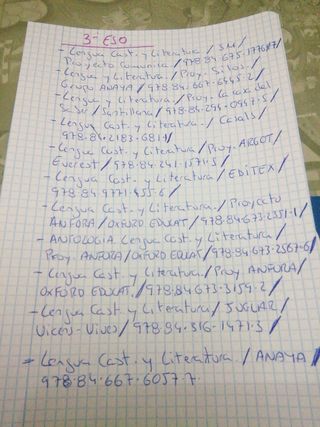 3º ESO
- Lengua Cast. y Literatura / SM /
Proyecto Comunica / 978.84.675.
- Lengua y Literatura. / Proy. Silos /
Grupo ANAYA / 978.84.667.6445.2 /
- Lengua y Literatura / Proy. La casa del
Saber / Santillana / 978.84.294.0947.5 /
- Lengua Cast. y Literatura. / Casals /
978.84.2183.681.1 /
- Lengua Cast. y Literatura / Proy. ARGOT /
Everest / 978.84.241.1571.5 /
- Lengua Cast. y Literatura / EDITEX /
978.84.9771.455.6 /
- Lengua Cast. y Literatura. / Proyecto
ANFORA / OXFORD EDUCAT / 978.84.673.2351.1 /
- ANTOLOGIA Lengua Cast. y Literatura /
Proy. ANFORA / OXFORD EDUCAT / 978.84.673.2567.6 /
- Lengua Cast. y Literatura / Proy ANFORA /
OXFORD EDUCAT. / 978.84.673.3154.2 /
- Lengua Cast. y Literatura / JUGLAR /
Vicens-Vives / 978.84.316.1471.5 /
- Lengua Cast. y Literatura. / ANAYA /
978.84.667.6057.7.